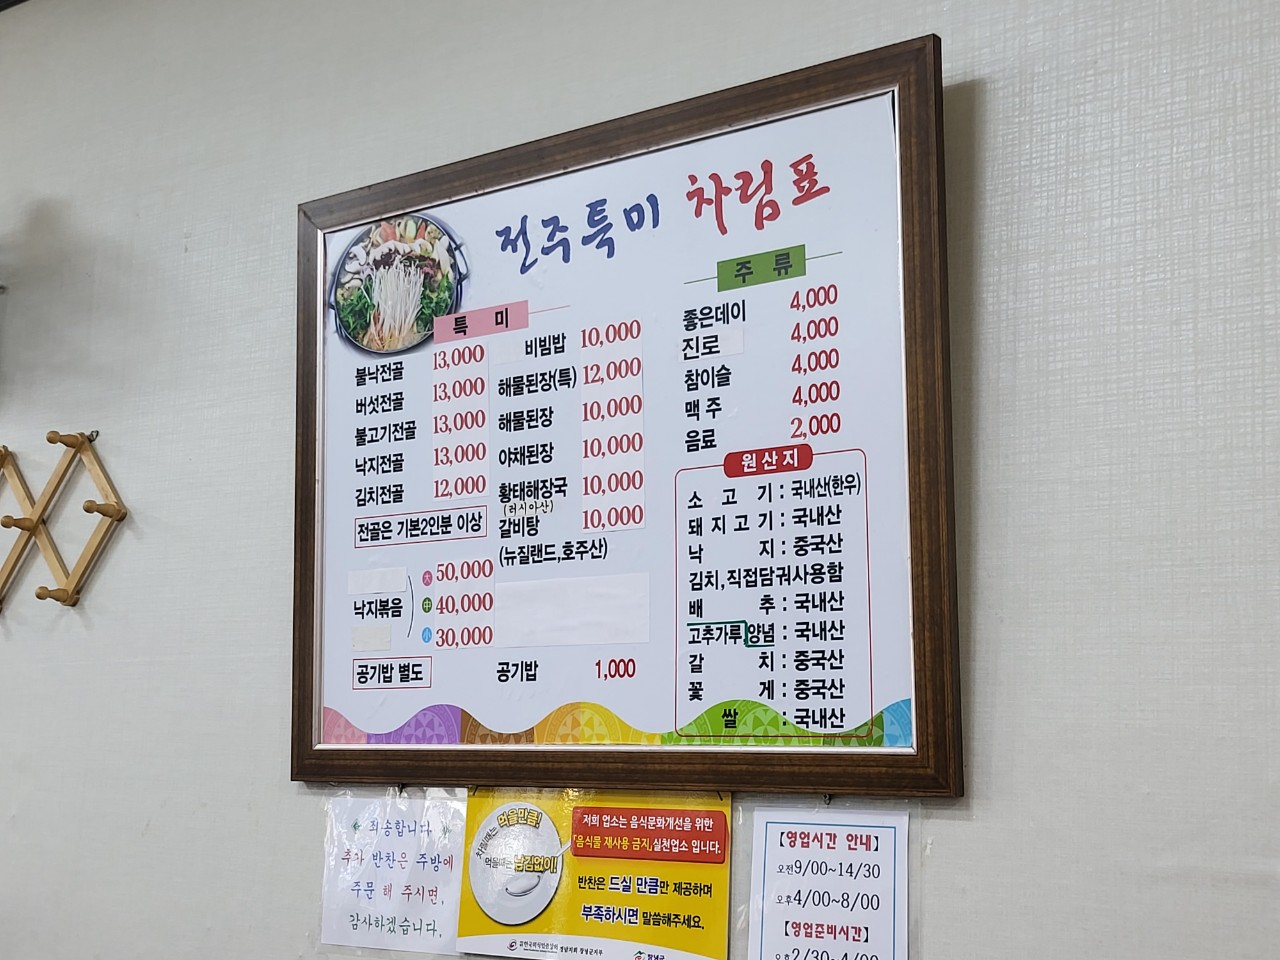 전주특미 차림표
특 미
불낙전골 13,000
버섯전골 13,000
불고기전골 13,000
낙지전골 13,000
김치전골 12,000
전골은 기본2인분 이상
낙지볶음
大 50,000
中 40,000
小 30,000
공기밥 별도
비빔밥 10,000
해물된장(특) 12,000
해물된장 10,000
야채된장 10,000
황태해장국 10,000
(러시아산)
갈비탕 10,000
(뉴질랜드,호주산)
공기밥 1,000
주 류
좋은데이 4,000
진로 4,000
참이슬 4,000
맥 주 4,000
음료 2,000
원산지
소 고 기 : 국내산(한우)
돼지고기 : 국내산
낙 지 : 중국산
김치,직접담궈사용함
배 추 : 국내산
고추가루,양념 : 국내산
갈 치 : 중국산
꽃 게 : 중국산
쌀 : 국내산
죄송합니다.
추가 반찬은 주방에
주문 해 주시면,
감사하겠습니다.
차릴때는 먹을만큼!
먹을때는 남김없이!
저희 업소는 음식문화개선을 위한
「음식물 재사용 금지」실천업소 입니다.
반찬은 드실 만큼만 제공하며
부족하시면 말씀해주세요.
창녕군
【영업시간 안내】
오전9/00~14/30
오후4/00~8/00
【영업준비시간】
오후2/30~4/00